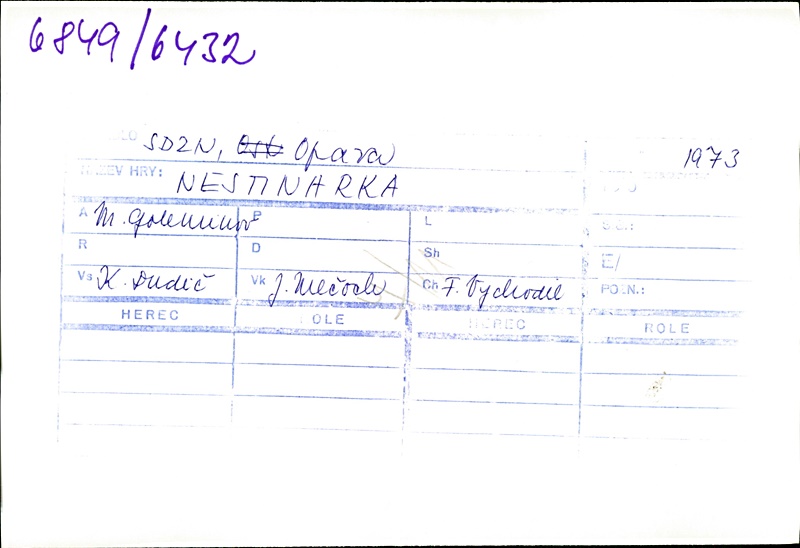 6849/6432
LO SDZN, Ost Opava 1973
NÁZEV HRY: NESTINARKA
A M. Goleminov P L
R D Sh E/
Vs K. Dudič Vk J. Nečoch Ch F. Vychodil POZN.:
HEREC ROLE HEREC ROLE